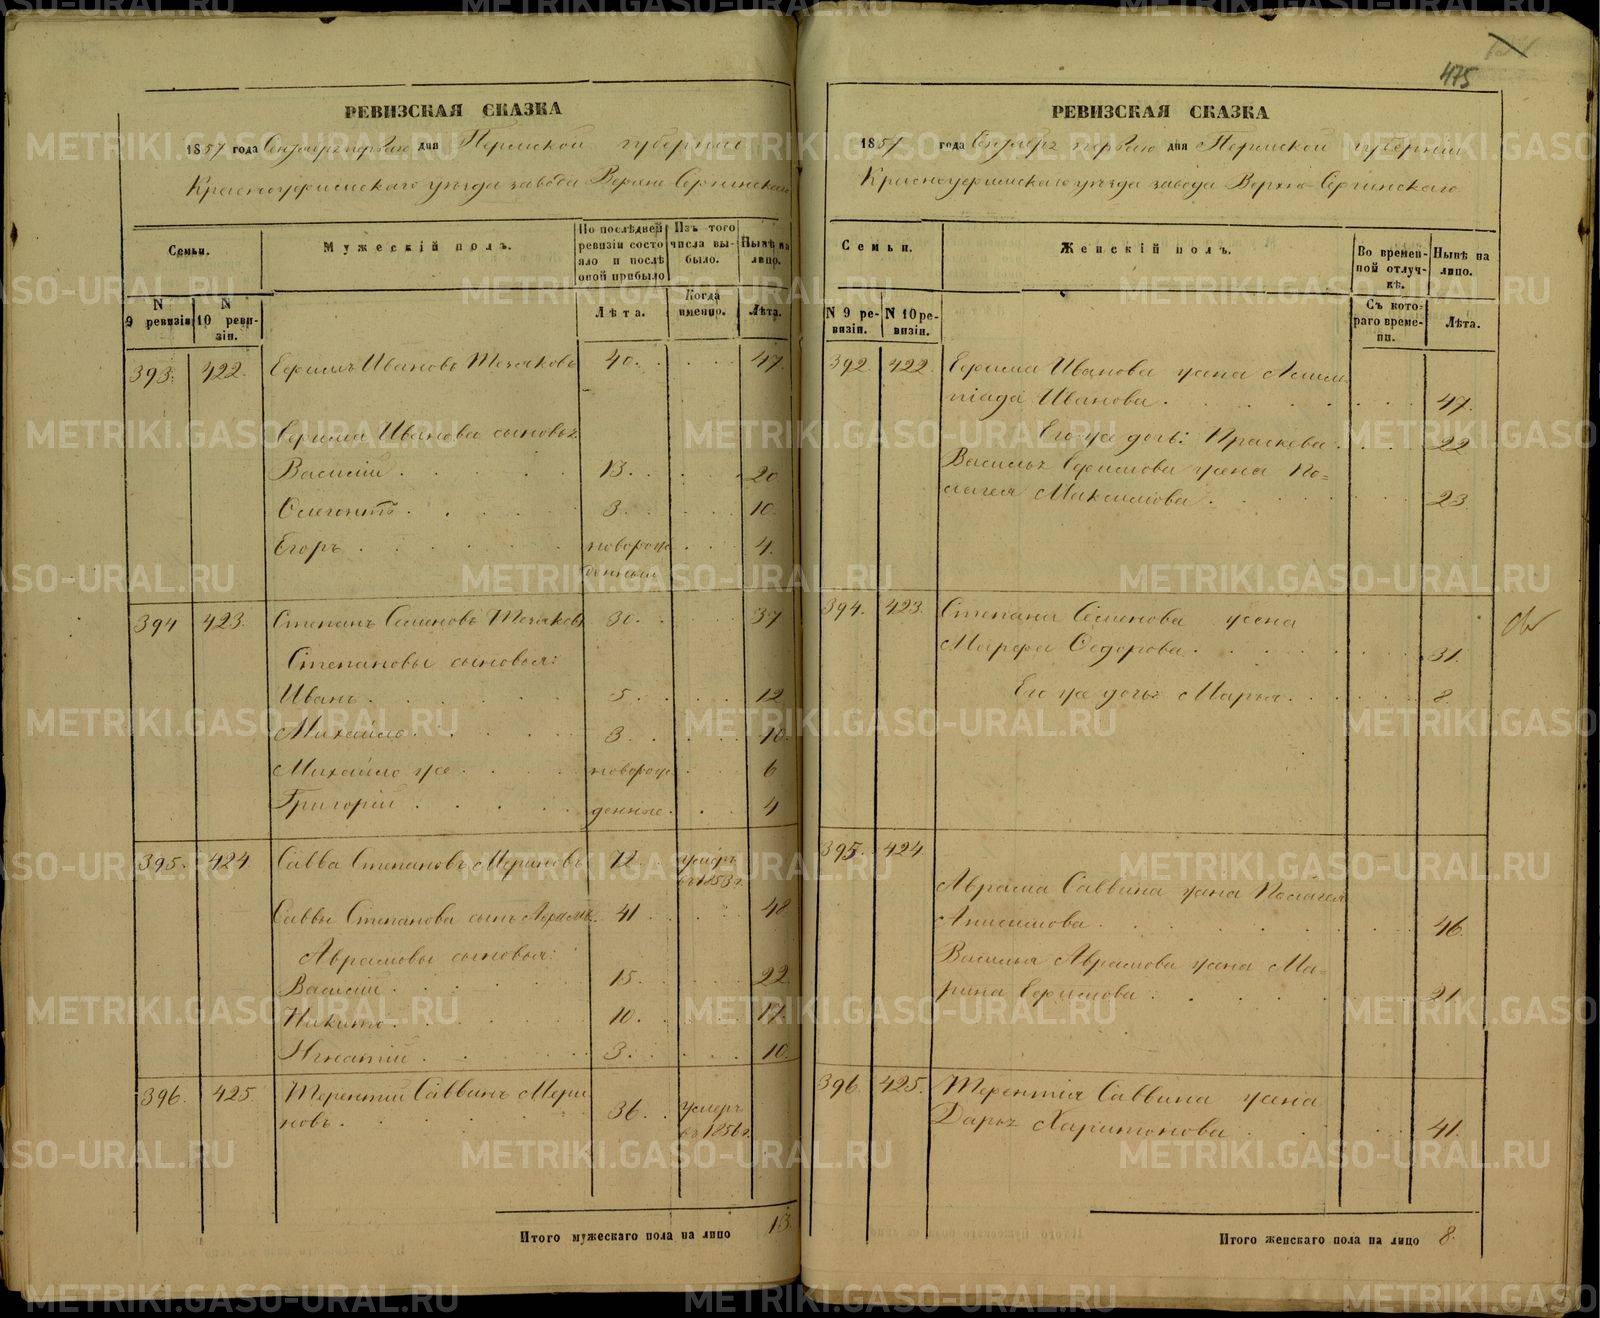 РЕВИЗСКАЯ СКАЗКА
1857 года Сентября первого дня Пермской губернии
Красноуфимскаго уезда завода Верхне Сергинскаго
Семьи.
Мужескій полъ.
По послѣдней ревизіи состояло и послѣ оной прибыло
Изъ того числа выбыло.
Нынѣ на лицо.
N 9 ревизіи
N 10 ревизіи.
Лѣта.
Когда именно.
Лѣта.
393. 422. Ефимъ Ивановъ 40. 47.
Ефима Иванова сыновья
Василій 13. 20
3. 10.
Егоръ новорожденный 4.
394 423. Степанъ Семеновъ 30. 37
Степановы сыновья:
Иванъ 5 12
Михайло 3. 10.
Михайло же новорож 6
Григорій денные 4
395. 424 Савва Степановъ Мериновъ 72. умеръ въ 1853 г.
Саввы Степанова сынъ Абрамъ 41 48
Абрамовы сыновья:
Василій 15. 22
Никита 10. 17.
Игнатій 3. 10.
396. 425 Терентій Саввинъ Мери
новъ 36. умеръ въ 1856 г.
Итого мужескаго пола на лицо 13.
475
РЕВИЗСКАЯ СКАЗКА
1857 года Сентября первого дня Пермской губерніи
Красноуфимскаго уезда завода Верхне-Сергинскаго
Семьи.
Женскій полъ.
Во временной отлучкѣ.
Нынѣ на лицо.
N 9 ревизіи.
N 10 ревизіи.
Съ котораго времени.
Лѣта.
392. 422. Ефима Иванова жена
Иванова 47.
Его же дочь: Прасковья 22
Василья Ефимова жена Пе=
лагея Максимова 23.
394. 423. Степана Семенова жена
Марфа Федорова 31.
Его же дочь Марья 8.
395. 424
Абрама Саввина жена Пелагея
Анисимова 46.
Василья Абрамова жена Ма=
рина Ефимова 21.
396. 425. Терентія Саввина жена
Дарья Харитонова 41.
Итого женскаго пола на лицо 8.
METRIKI.GASO-URAL.RU